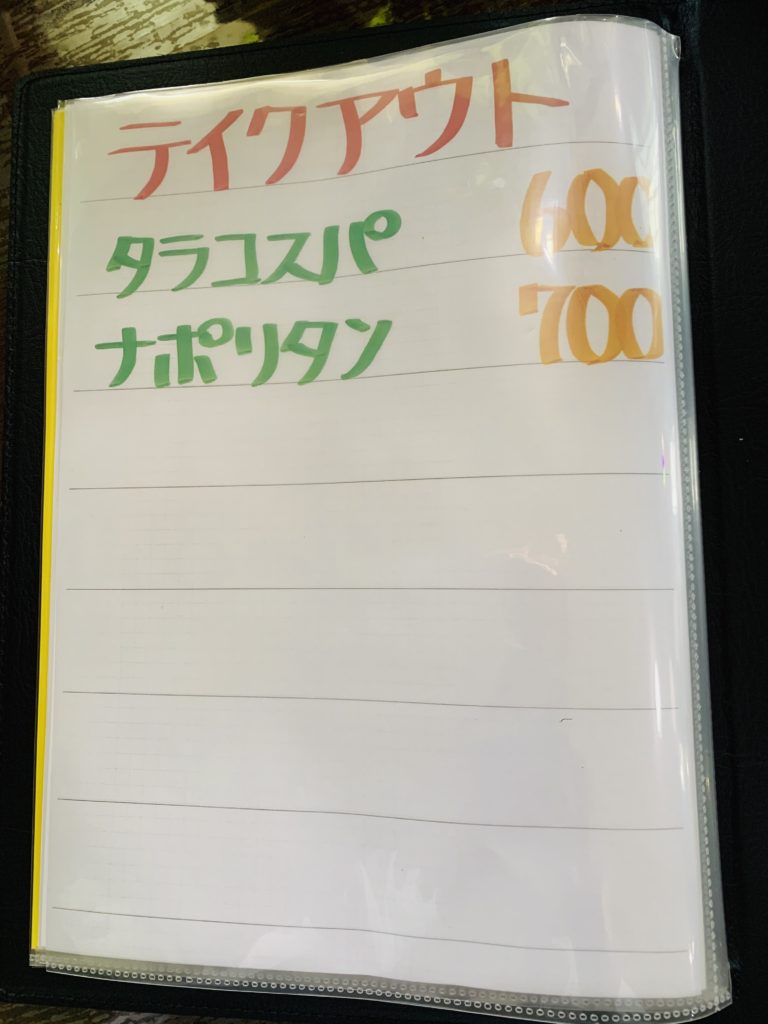 テイクアウト
タラコスパ 600
ナポリタン 700